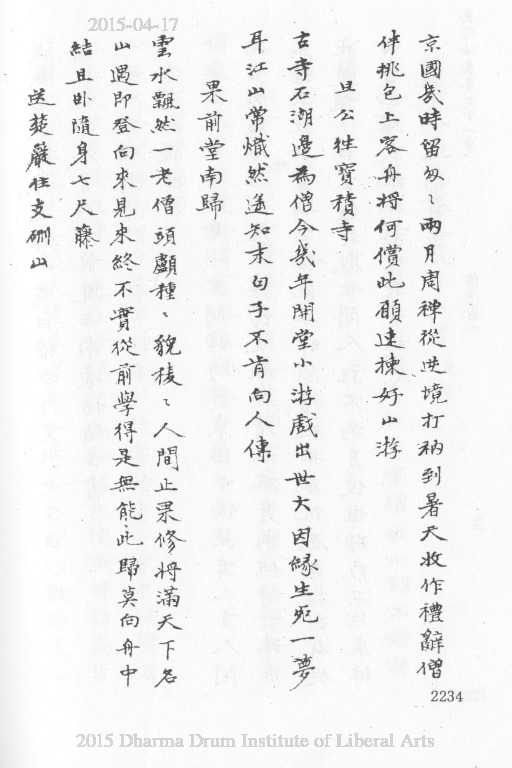 2015-04-17
京國幾時留匆〻兩月周禪從逆境打衲到暑天收作禮辭僧
伴挑包上客舟將何償此願速揀好山游
旦公住寶積寺
古寺石湖邊為僧今幾年開堂小游戲出世大因緣生死一夢
耳江山常熾然遙知末句子不肯向人傳
果前堂南歸
雲水飄然一老僧頭顱種〻貌稜〻人間止果修將滿天下名
山遇即登向來見來終不實從前學得是無能此歸莫向舟中
結且卧隨身七尺藤
送嚴住支硎山
2234
2015 Dharma Drum Institute of Liberal Arts